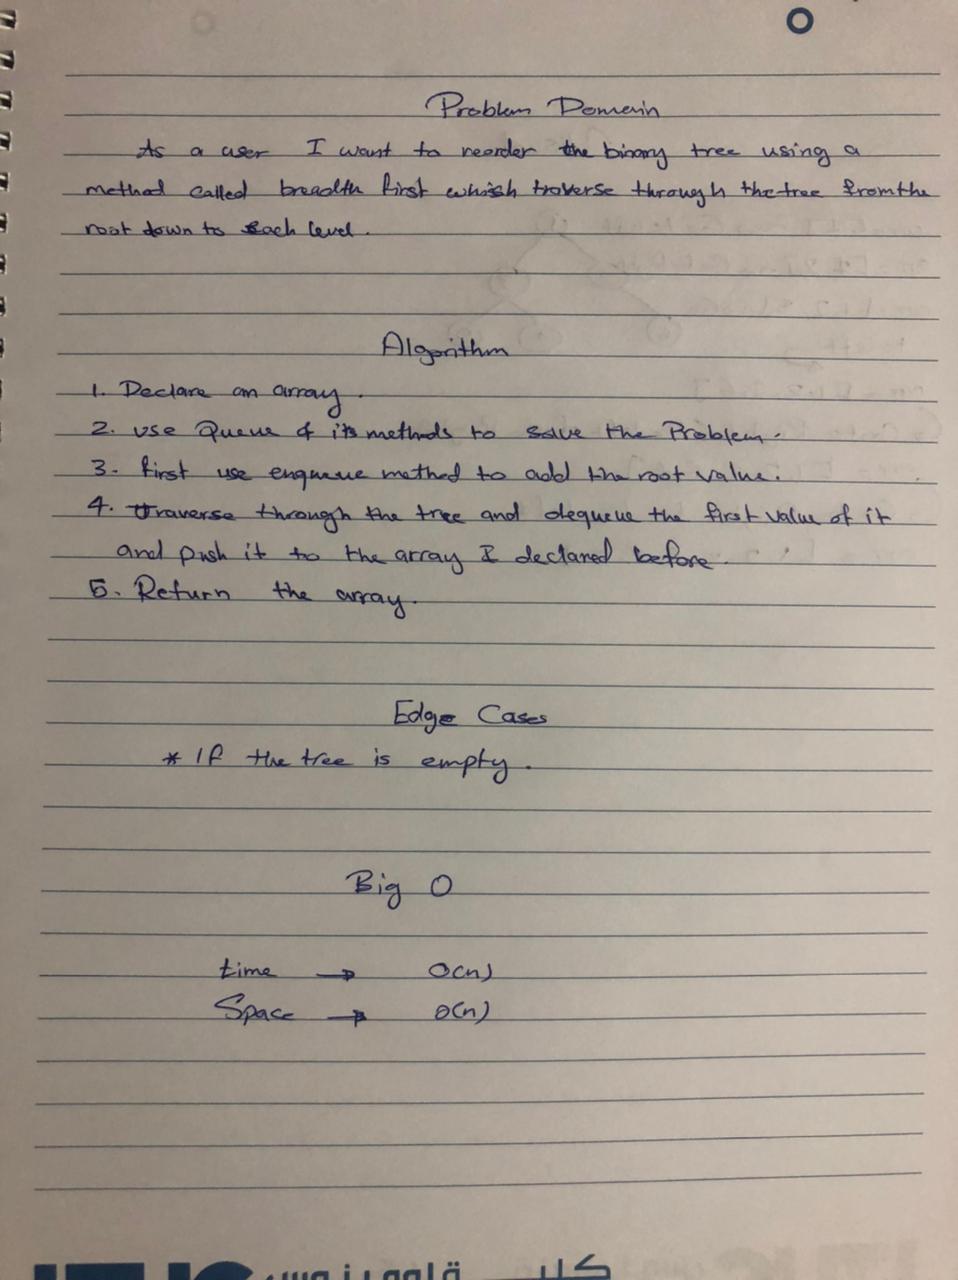 Problem Domain
As a user I want to reorder the binary tree using a
method called breadth first which traverse through the tree from the
root down to each level.
Algorithm
1. Declare an array.
2. use Queue & its methods to solve the Problem.
3. first use enqueue method to add the root value.
4. traverse through the tree and dequeue the first value of it
and push it to the array I declared before.
5. Return the array.
Edge Cases
* If the tree is empty.
Big O
time → O(n)
Space → O(n)